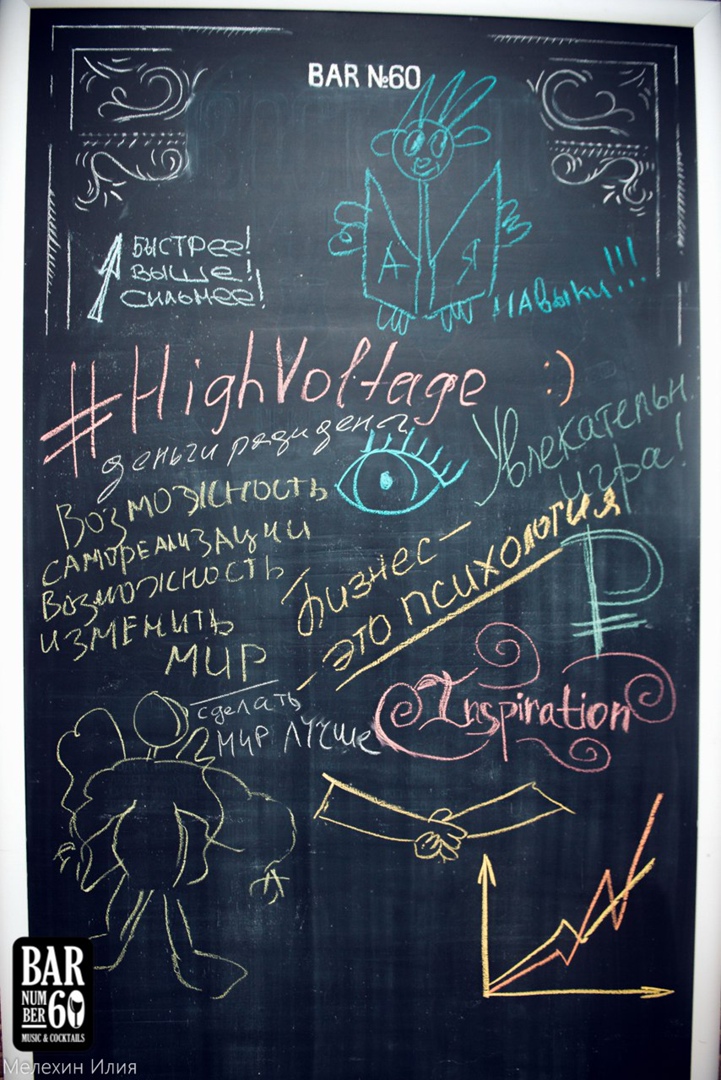 BAR №60
БЫСТРЕЕ!
ВЫШЕ!
СИЛЬНЕЕ!
А Я
НАВЫКИ!!!
#HighVoltage :)
деньги
Увлекательн.
игра!
Возможность
самореализации
Возможность
изменить
мир
Бизнес-
- это психология
сделать
мир лучше
Inspiration
BAR
NUM
BER 60
MUSIC & COCKTAILS
Мелехин Илия